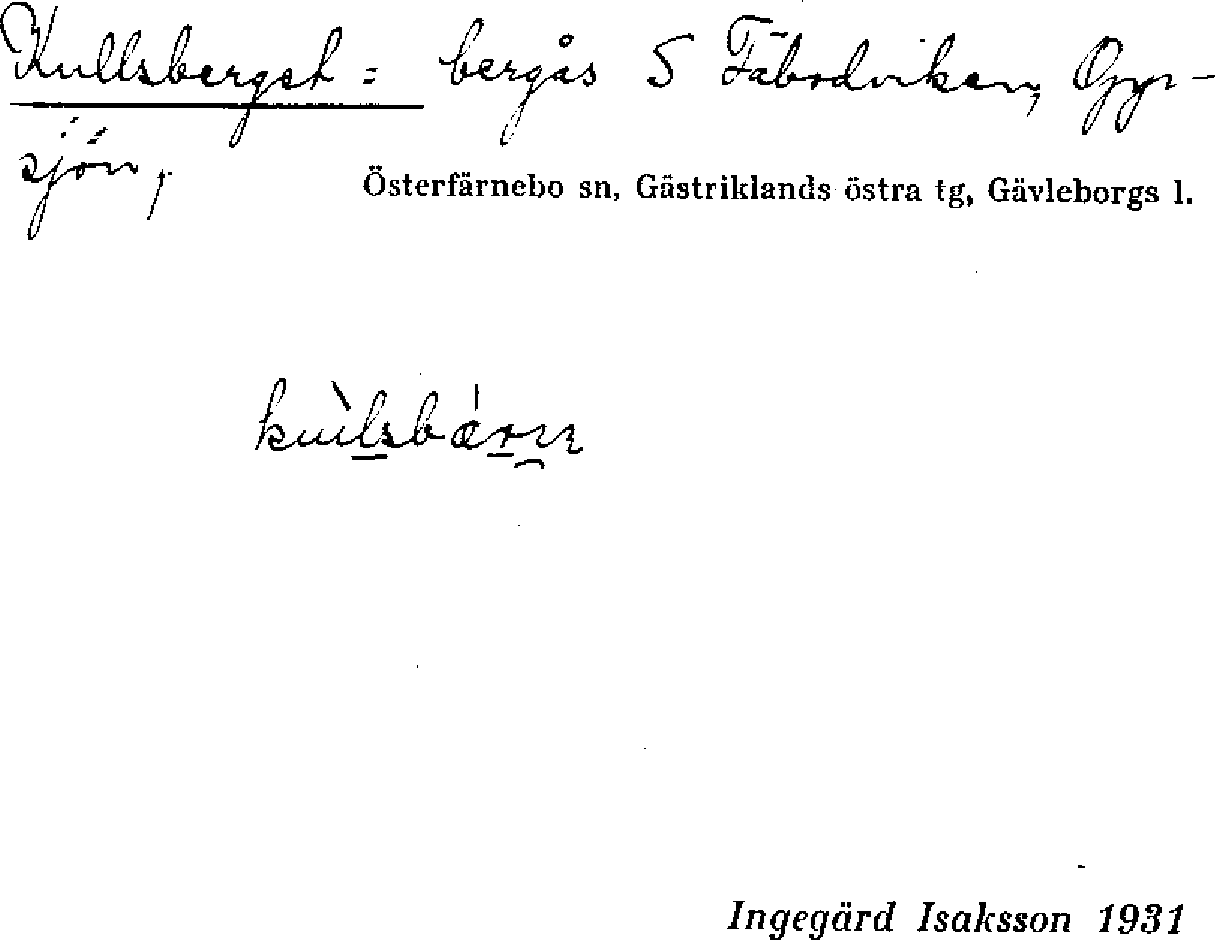 Kullsberget : bergås S Fäbodviken, Gyr-
sjön,
Österfärnebo sn, Gästriklands östra tg, Gävleborgs l.
Ingegärd Isaksson 1931